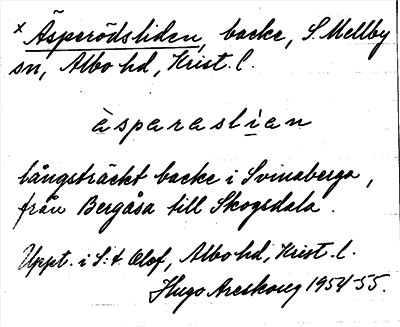 x Äsperödsliden, backe, S. Mellby
sn, Albo hd, Krist. l.
àsparaslìan
långsträckt backe i Svinaberga,
från Bergåsa till Skogsdala.
Uppt. i S:t Olof, Albo hd, Krist. l.
Hugo Areskoug 1954-55.